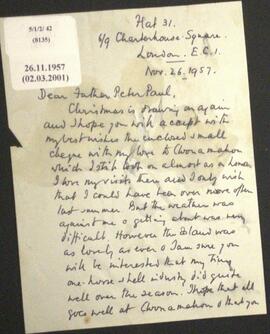 5/1/2/ 42
(8135)
26.11.1957
(02.03.2001)
Flat 31.
6/9 Charterhouse Square.
London. E.C.1.
Nov. 26. 1957.
Dear Father Peter Paul,
Christmas is drawing on again
and I hope you will accept with
my best wishes the enclosed small
cheque with my love to Cnoc na mahon
which I still look on almost as a home.
I love my visits there and I only wish
that I could have been over more often
last summer. But the weather was
against me & getting about was very
difficult. However the Island was
as lovely as ever & I am sure you
will be interested that my tiny
one-horse shell industry did quite
well over the season. I hope that all
goes well at & that you